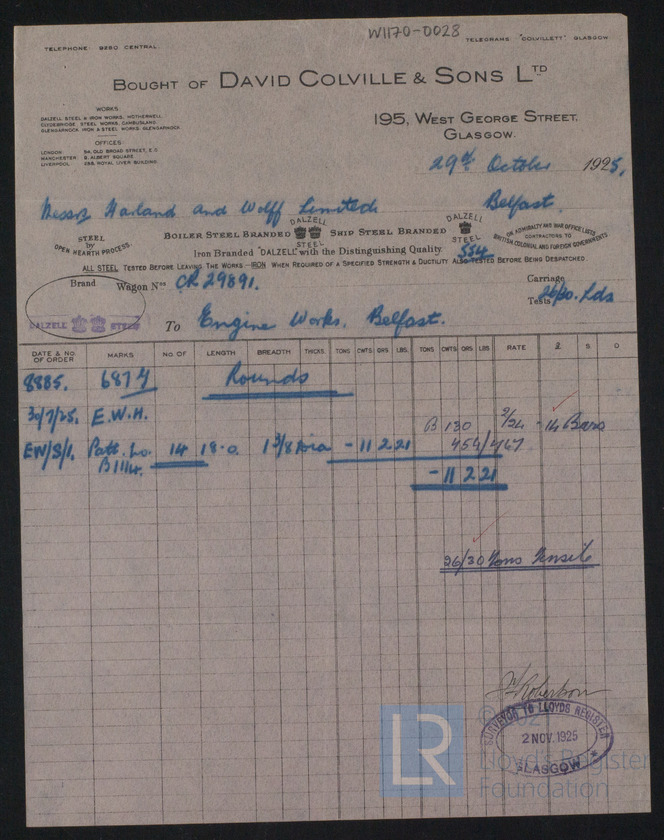 W1170-0028
TELEPHONE 9280 CENTRAL.
TELEGRAMS "COLVILLETT" GLASGOW
BOUGHT OF DAVID COLVILLE & SONS LTD
WORKS:
DALZELL STEEL & IRON WORKS, MOTHERWELL.
CLYDEBRIDGE STEEL WORKS, CAMBUSLANG.
GLENGARNOCK IRON & STEEL WORKS, GLENGARNOCK.
OFFICES:
LONDON: 54, OLD BROAD STREET, E.C.
MANCHESTER: 8, ALBERT SQUARE.
LIVERPOOL: ROYAL LIVER BUILDING.
195, WEST GEORGE STREET,
GLASGOW.
29th October 1925.
Messrs Harland and Wolff Limited Belfast.
STEEL by OPEN HEARTH PROCESS.
BOILER STEEL BRANDED DALZELL STEEL SHIP STEEL BRANDED DALZELL STEEL
ON ADMIRALTY AND WAR OFFICE LISTS
CONTRACTORS TO
BRITISH, COLONIAL AND FOREIGN GOVERNMENTS
Iron Branded "DALZELL" with the Distinguishing Quality.
554
ALL STEEL TESTED BEFORE LEAVING THE WORKS—IRON WHEN REQUIRED OF A SPECIFIED STRENGTH & DUCTILITY ALSO TESTED BEFORE BEING DESPATCHED.
Brand Wagon Nos CR 29891.
Carriage
Tests 26/30. Lds
DALZELL STEEL
To Engine Works, Belfast.
DATE & NO. OF ORDER MARKS NO. OF LENGTH BREADTH THICKS. TONS CWTS QRS LBS. TONS CWTS QRS LBS RATE £ S D
8885. 6874 Rounds
30/7/25. E.W.H.
B 130 2/24 - 14 Bars
EW/S/1. Patt. Lo. 14 18-0. 1 3/8 Dia - 11 2 21 454/467
B1114.
- 11 2 21
26/30 Tons Tensile
Robertson
SURVEYOR TO LLOYDS REGISTER
2 NOV. 1925
GLASGOW
LR
Lloyd's Register
Foundation